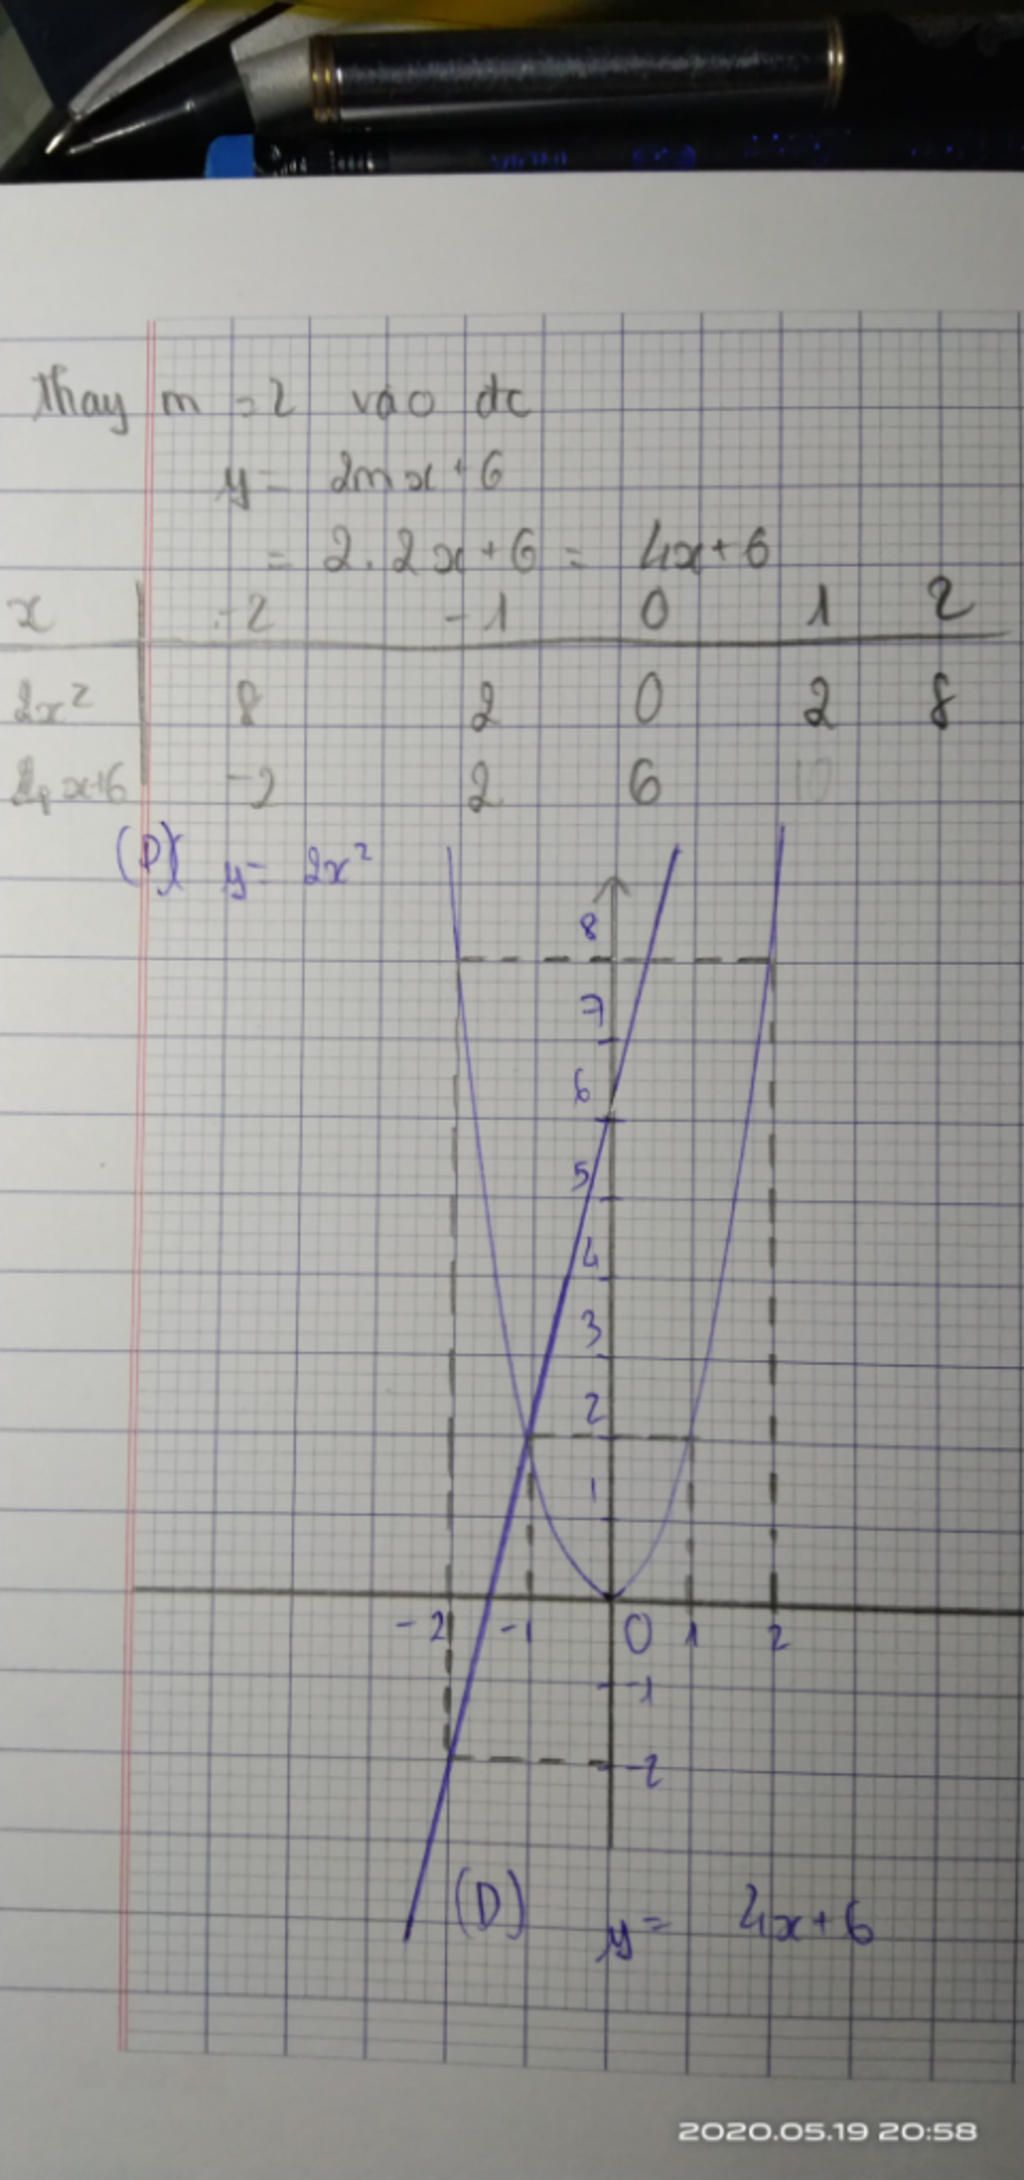 Thay m = 2 vào đc
y = 2mx + 6
= 2. 2x + 6 = 4x + 6
x -2 -1 0 1 2
2x² 8 2 0 2 8
4x+6 -2 2 6 10
(P) y = 2x²
8
7
6
5
4
3
2
1
-2 -1 0 1 2
-1
-2
(D) y = 4x + 6
2020.05.19 20:58